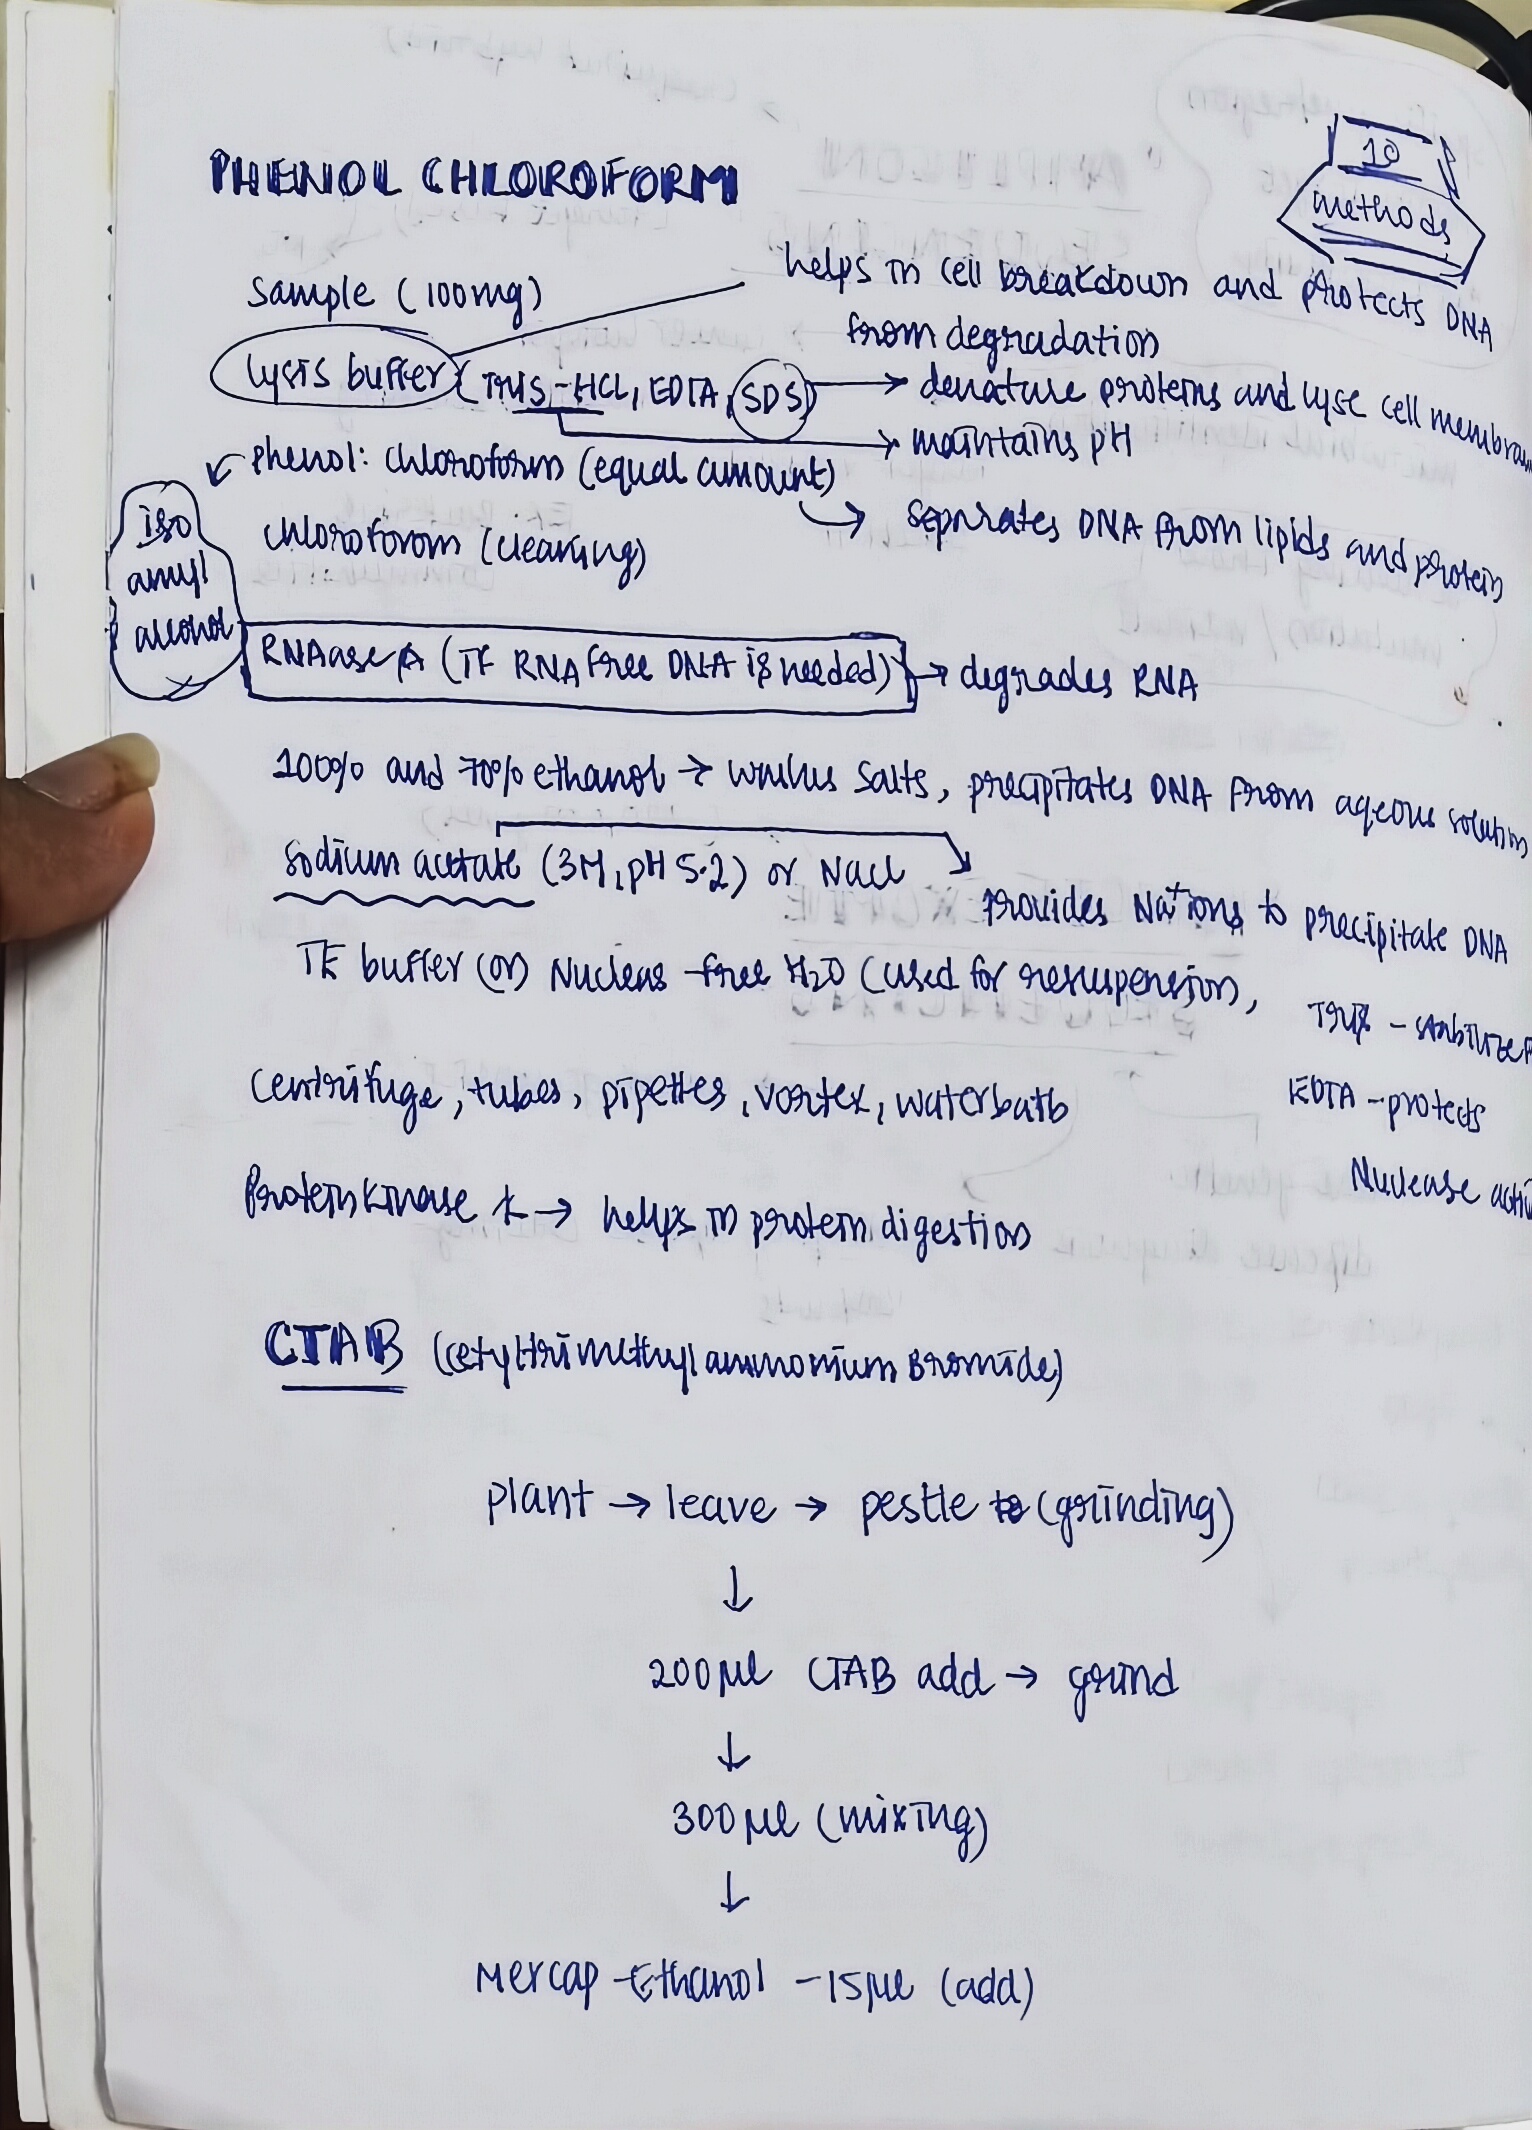 10
methods
PHENOL CHLOROFORM
Sample (100mg)
helps in cell breakdown and protects DNA
from degradation
Lysis buffer (TRIS-HCL, EDTA, SDS) → denature proteins and lyse cell membran
→ maintains pH
Phenol: chloroform (equal amount)
→ separates DNA from lipids and protein
iso
amyl
alcohol
chloroform (cleaning)
RNAase A (If RNA free DNA is needed) → degrades RNA
100% and 70% ethanol → washes salts, precipitates DNA from aqeous solution
Sodium acetate (3M, pH 5.2) or Nacl
Provides Na+ ions to precipitate DNA
TE buffer (or) Nucleas-free H2O (used for resuspension,
TRIS - stabilize
Centrifuge, tubes, pipettes, vortex, waterbath
EDTA - protects
Nuclease acti
Protein kinase k → helps in protein digestion
CTAB (cetyltrimethyl ammonium Bromide)
plant → leave → pestle (grinding)
↓
200 µl CTAB add → grind
↓
300 µl (mixing)
↓
Mercap-Ethanol - 15 µl (add)